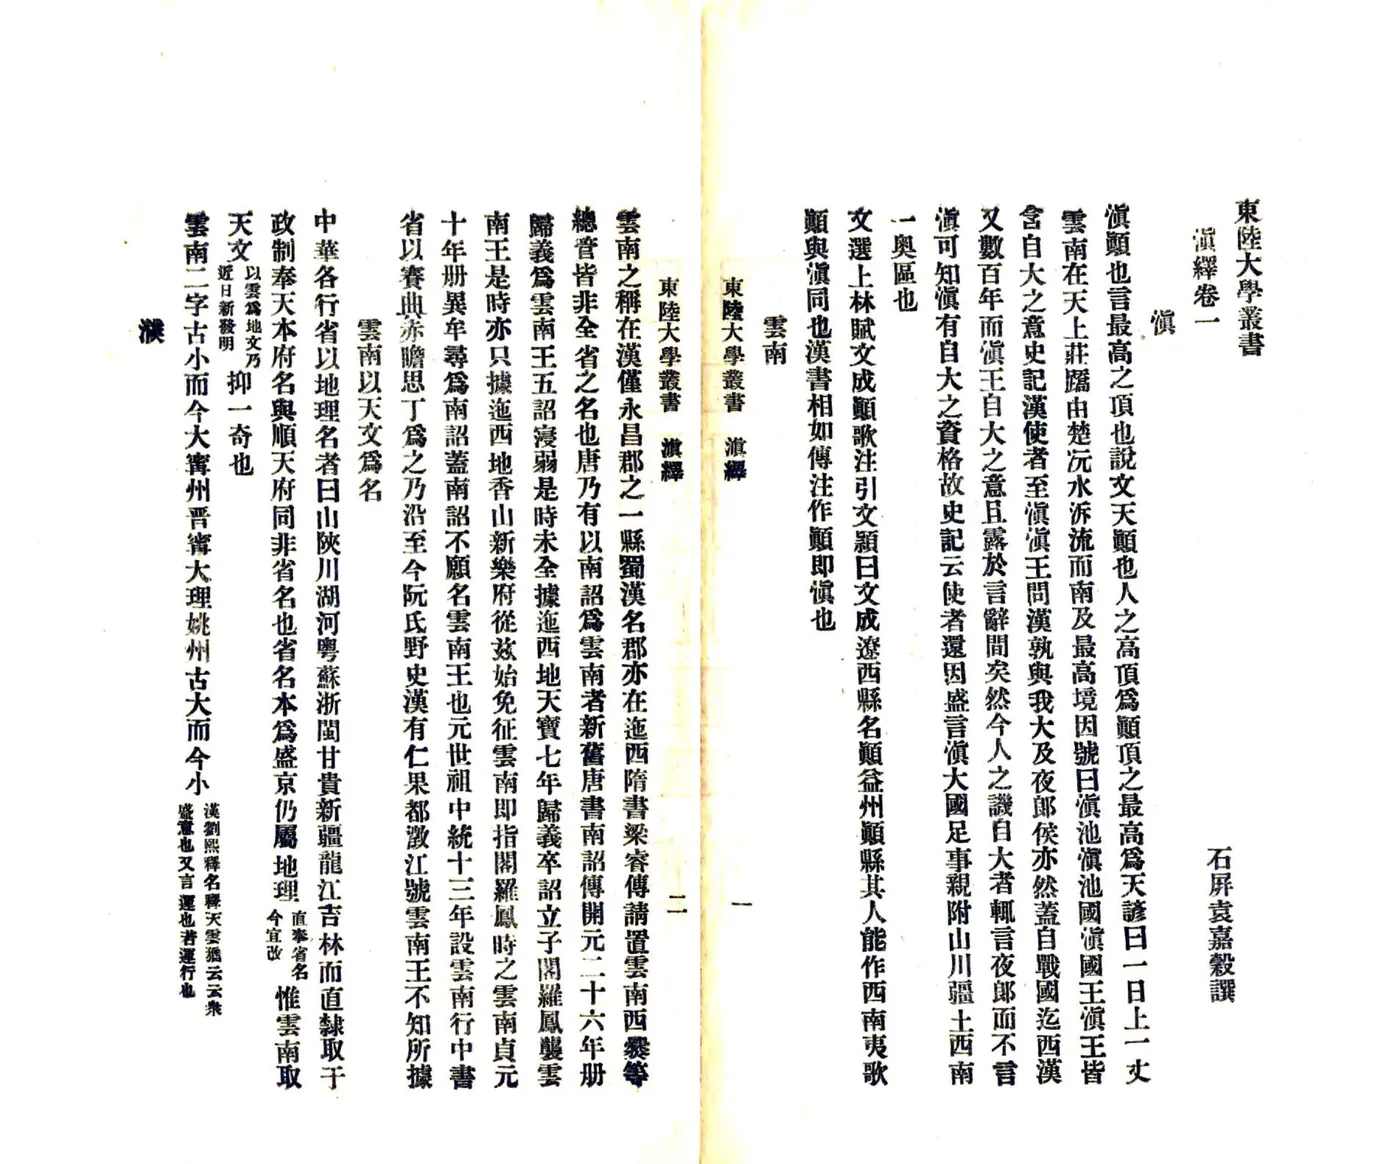 東陸大學叢書
滇繹卷一
石屏袁嘉穀譔
滇
滇顚也言最高之頂也說文天顚也人之高頂爲顚頂之最高爲天諺曰一日上一丈
雲南在天上莊蹻由楚沅水泝流而南及最高境因號曰滇池滇池國滇國王滇王皆
含自大之意史記漢使者至滇滇王問漢孰與我大及夜郞侯亦然蓋自戰國迄西漢
又數百年而滇王自大之意且露於言辭間矣然今人之譏自大者輒言夜郞而不言
滇可知滇有自大之資格故史記云使者還因盛言滇大國足事親附山川疆土西南
一奧區也
文選上林賦文成顚歌注引文穎曰文成遼西縣名顚益州顚縣其人能作西南夷歌
顚與滇同也漢書相如傳注作顚即滇也
雲南
東陸大學叢書 滇繹 一
東陸大學叢書 滇繹 二
雲南之稱在漢僅永昌郡之一縣蜀漢名郡亦在迤西隋書梁睿傳請置雲南西爨等
總管皆非全省之名也唐乃有以南詔爲雲南者新舊唐書南詔傳開元二十六年册
歸義爲雲南王五詔寖弱是時未全據迤西地天寶七年歸義卒詔立子閣羅鳳襲雲
南王是時亦只據迤西地香山新樂府從茲始免征雲南即指閣羅鳳時之雲南貞元
十年册異牟尋爲南詔蓋南詔不願名雲南王也元世祖中統十三年設雲南行中書
省以賽典赤瞻思丁爲之乃沿至今阮氏野史漢有仁果都澂江號雲南王不知所據
雲南以天文爲名
中華各行省以地理名者曰山陝川湖河粤蘇浙閩甘貴新疆龍江吉林而直隸取于
政制奉天本府名與順天府同非省名也省名本爲盛京仍屬地理 直奉省名今宜改 惟雲南取
天文 以雲爲地文乃近日新發明 抑一奇也
雲南二字古小而今大寗州晋寗大理姚州古大而今小 漢劉熙釋名釋天雲猶云云衆盛意也又言運也若運行也
濮